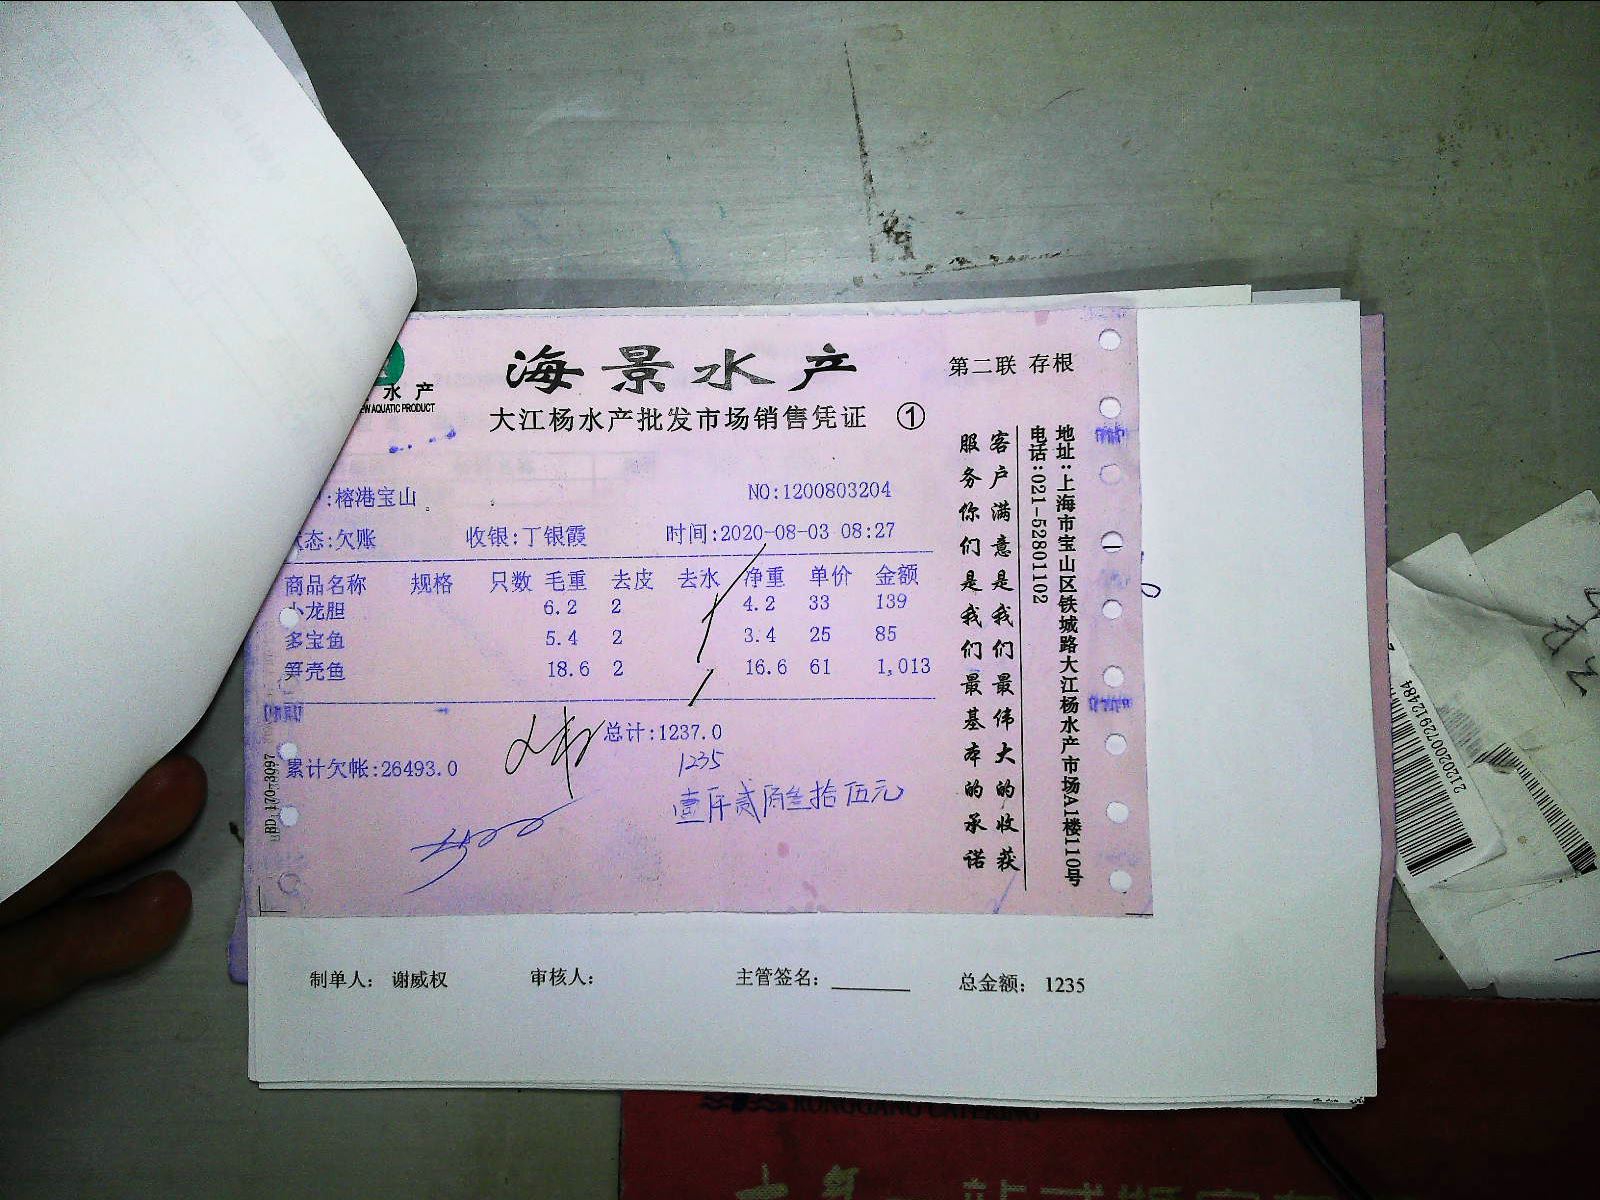 海景水产
第二联 存根
水产
AQUATIC PRODUCT
大江杨水产批发市场销售凭证 ①
:榕港宝山
NO:1200803204
态:欠账 收银:丁银霞 时间:2020-08-03 08:27
商品名称 规格 只数 毛重 去皮 去水 净重 单价 金额
小龙胆 6.2 2 4.2 33 139
多宝鱼 5.4 2 3.4 25 85
笋壳鱼 18.6 2 16.6 61 1,013
总计:1237.0
累计欠帐:26493.0
1235
壹仟贰佰叁拾伍元
客户满意是我们最伟大的收获
服务你们是我们最基本的承诺
地址:上海市宝山区铁城路大江杨水产市场A1楼110号
电话:021-52801102
制单人: 谢威权 审核人: 主管签名: 总金额: 1235
2112020072912484
RONGGANG CATERING